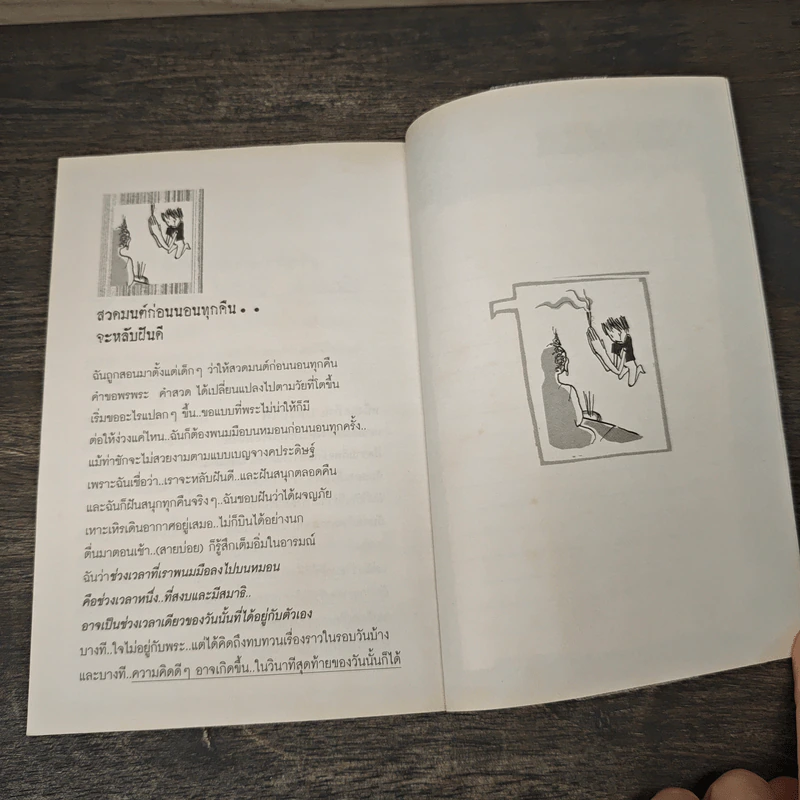 สวดมนต์ก่อนนอนทุกคืน • •
จะหลับฝันดี
ฉันถูกสอนมาตั้งแต่เด็กๆ ว่าให้สวดมนต์ก่อนนอนทุกคืน
คำขอพรพระ คำสวด ได้เปลี่ยนแปลงไปตามวัยที่โตขึ้น
เริ่มขออะไรแปลกๆ ขึ้น..ขอแบบที่พระไม่น่าให้ก็มี
ต่อให้ง่วงแค่ไหน..ฉันก็ต้องพนมมือบนหมอนก่อนนอนทุกครั้ง..
แม้ท่าชักจะไม่สวยงามตามแบบเบญจางคประดิษฐ์
เพราะฉันเชื่อว่า..เราจะหลับฝันดี..และฝันสนุกตลอดคืน
และฉันก็ฝันสนุกทุกคืนจริงๆ..ฉันชอบฝันว่าได้ผจญภัย
เหาะเหิรเดินอากาศอยู่เสมอ..ไม่ก็บินได้อย่างนก
ตื่นมาตอนเช้า..(สายบ่อย) ก็รู้สึกเต็มอิ่มในอารมณ์
ฉันว่าช่วงเวลาที่เราพนมมือลงไปบนหมอน
คือช่วงเวลาหนึ่ง..ที่สงบและมีสมาธิ..
อาจเป็นช่วงเวลาเดียวของวันนั้นที่ได้อยู่กับตัวเอง
บางที..ใจไม่อยู่กับพระ..แต่ได้คิดถึงทบทวนเรื่องราวในรอบวันบ้าง
และบางที..ความคิดดีๆ อาจเกิดขึ้น..ในวินาทีสุดท้ายของวันนั้นก็ได้